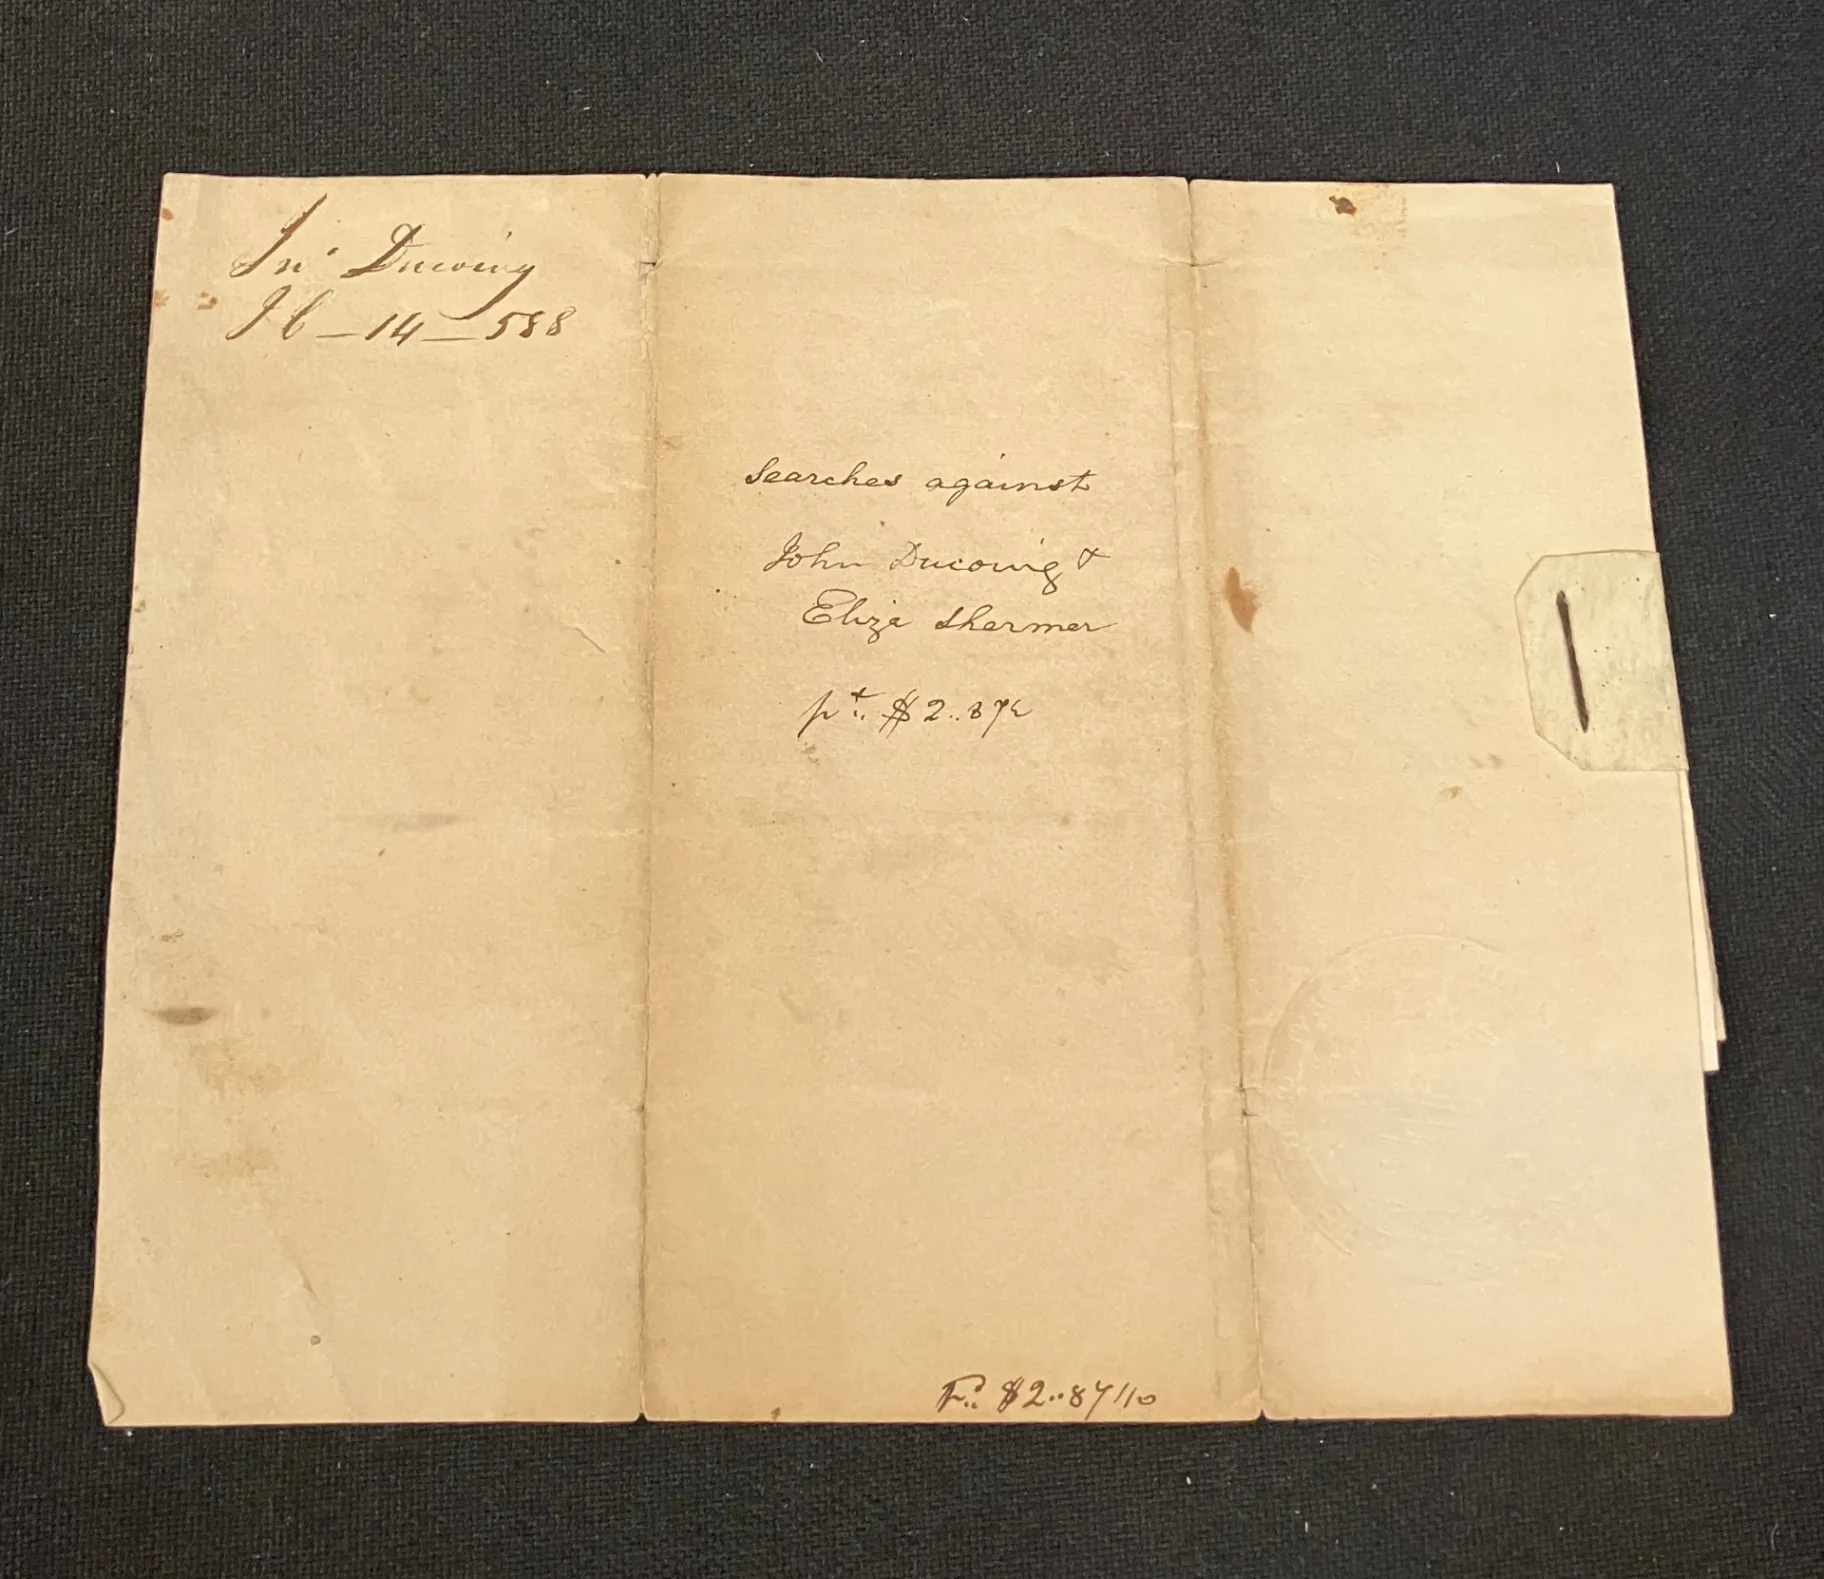 Jno Ducoing
J C — 14 — 588
Searches against
John Ducoing &
Eliza Shermer
pt: $2..87½
$2..87/10